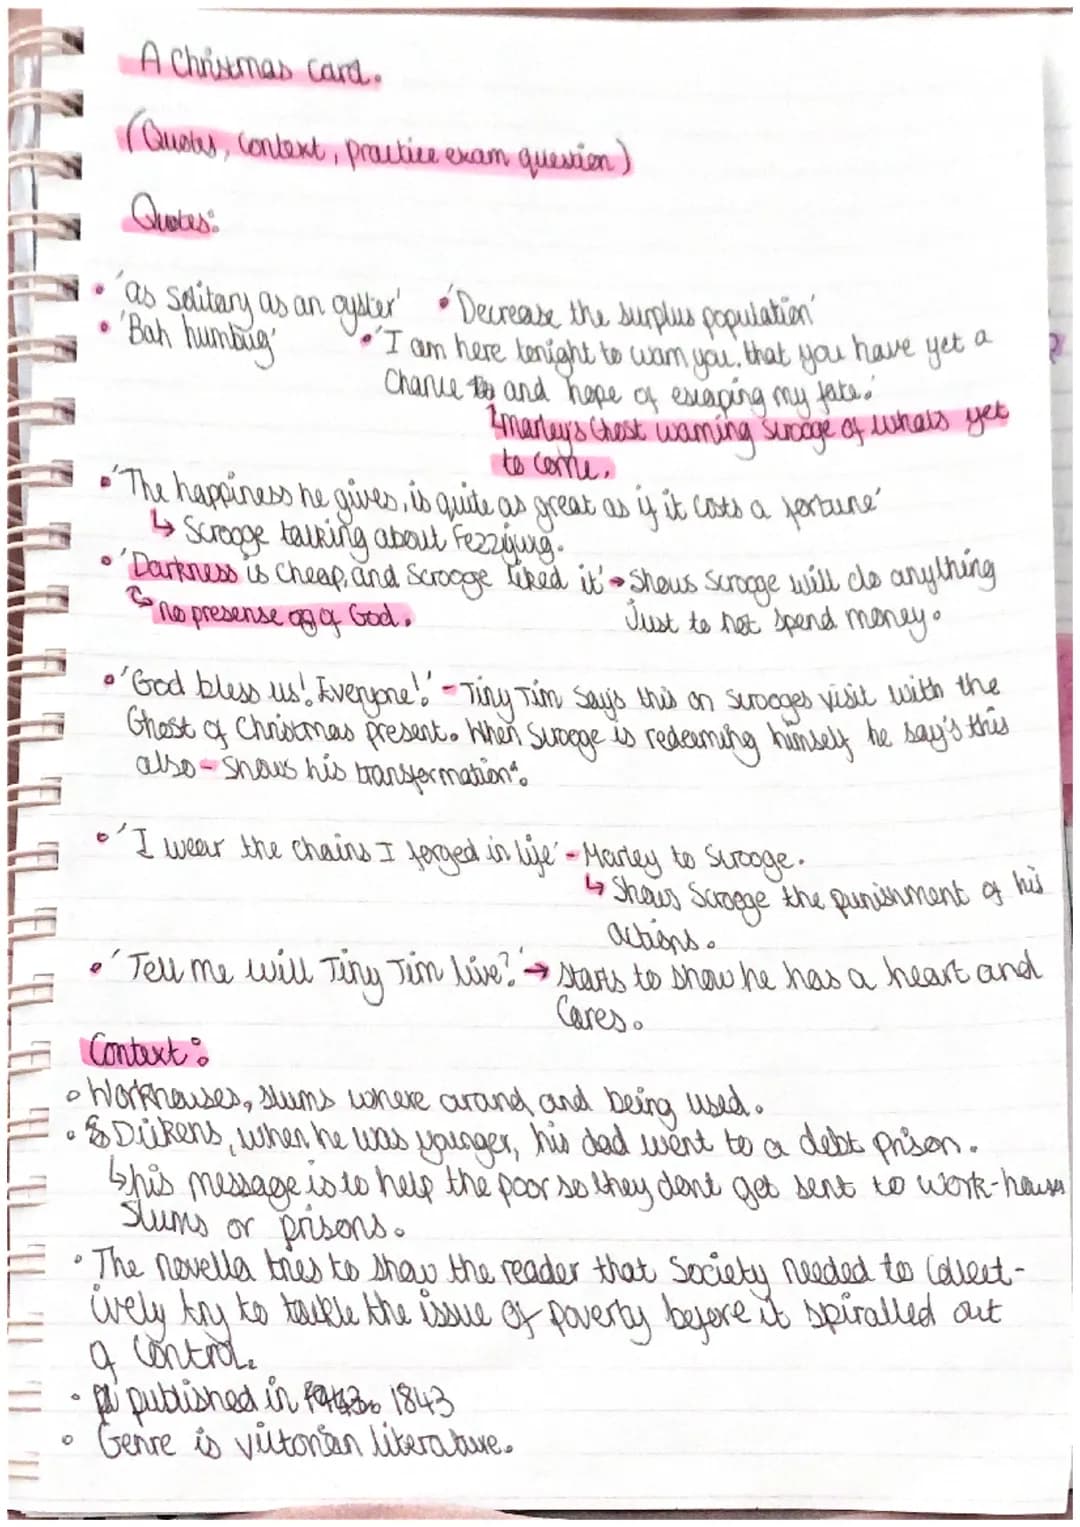 A Christmas Carol.
(Quotes, Context, practice exam question)
Quotes:
• 'as solitary as an oyster' • 'Decrease the surplus population'
• 'Bah humbug' • 'I am here tonight to warn you. that you have yet a
Chance to and hope of escaping my fate.'
↑ Marley's Ghost warning Scrooge of whats yet
to come.
• 'The happiness he gives, is quite as great as if it costs a fortune'
↳ Scrooge talking about Fezziwig.
• 'Darkness is cheap, and Scrooge liked it' → Shows Scrooge will do anything
↳ no presense of God. Just to not spend money.
• 'God bless us! Everyone!' - Tiny Tim say's this on Scrooges visit with the
Ghost of Christmas present. When Scrooge is redeeming himself he say's this
also - Shows his transformation.
• 'I wear the chains I forged in life' - Marley to Scrooge.
↳ Shows Scrooge the punishment of his
actions.
• 'Tell me will Tiny Tim live?' → starts to show he has a heart and
Cares.
Context:
• Workhouses, slums where around and being used.
• Dickens, when he was younger, his dad went to a debt prison.
↳ his message is to help the poor so they dont get sent to work-houses
Slums or prisons.
• The novella tries to show the reader that Society needed to collect-
ively try to tackle the issue of poverty before it spiralled out
of control.
• published in 1943. 1843
• Genre is victorian literature.